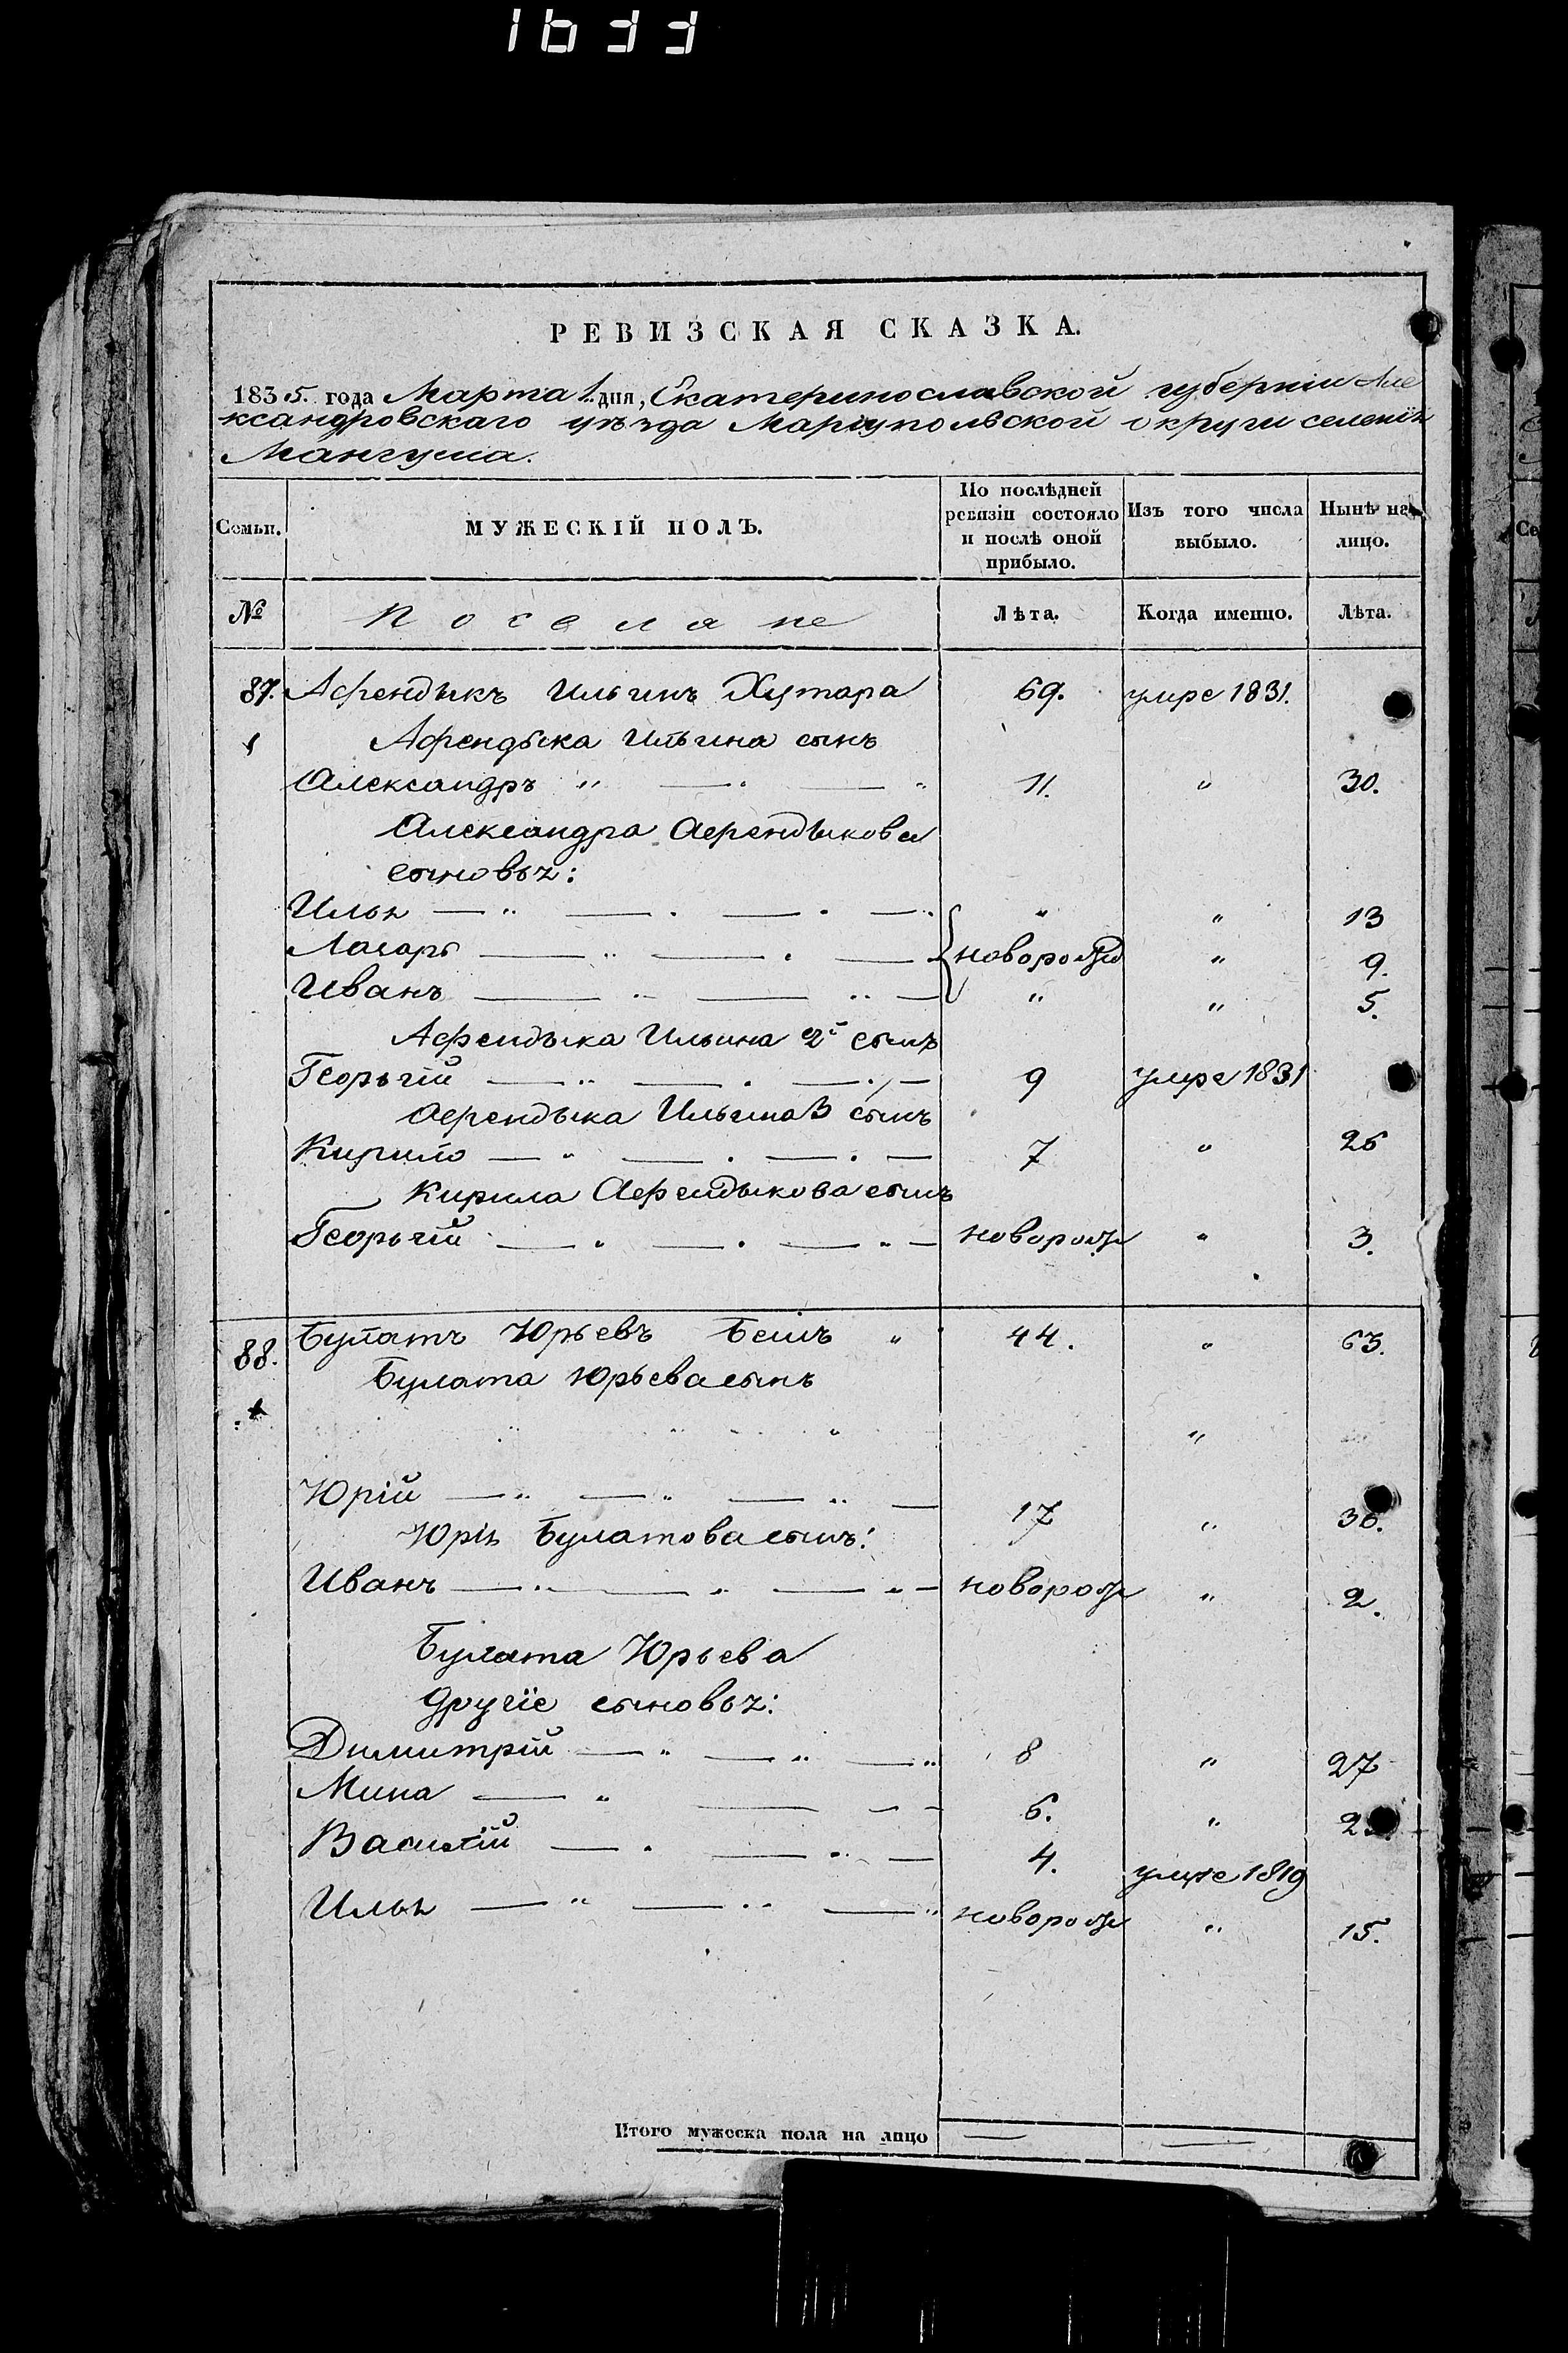 1633
РЕВИЗСКАЯ СКАЗКА.
1835. года Марта 1. дня, Екатеринославской губерніи Але
ксандровскаго уѣзда Маріупольской округи селенія
Мангуша.
Семьи. МУЖЕСКІЙ ПОЛЪ. По послѣдней ревизіи состояло и послѣ оной прибыло. Изъ того числа выбыло. Нынѣ на лицо.
№ Поселяне Лѣта. Когда именно. Лѣта.
87. Афендыкъ Ильинъ Хутара 69. умре 1831.
Афендыка Ильина сынъ
Александръ " — " — " 11. " 30.
Александра Афендыкова
сыновья:
Илья — " — " — " — " " " 13
Лазарь — " — " — новорожд " 9.
Иванъ — " — " — " " 5.
Афендыка Ильина 2й сынъ
Георгій — " — " — " — 9 умре 1831
Афендыка Ильина 3 сынъ
Кирило — " — " — " — 7 " 26
Кирила Афендыкова сынъ
Георгій — " — " — " — новорож " 3.
88. Булатъ Юрьевъ Бешъ " 44. " 63.
Булата Юрьева сынъ
"
Юрій — " — " — " — 17 " 36.
Юрія Булатова сынъ:
Иванъ — " — " — " — новорож " 2.
Булата Юрьева
другіе сыновья:
Димитрій — " — " — " 8 " 27
Мина — " — — — 6. "
Василій — " — " — 4. умре 1819
Илья — " — " — " новорож " 15.
Итого мужеска пола на лицо — —